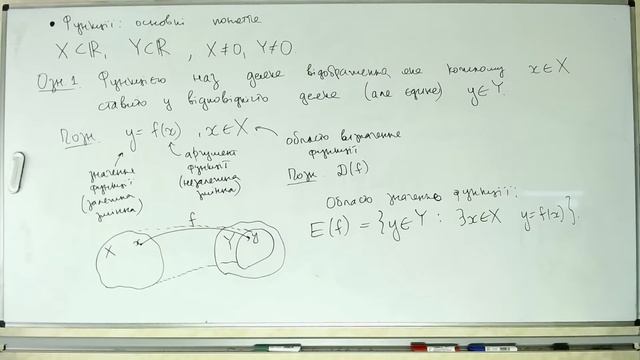 • Функції: основні поняття
X⊂ℝ, Y⊂ℝ, X≠0, Y≠0
Озн.1 Функцією наз деяке відображення, яке кожному x∈X
ставить у відповідність деяке (але єдине) y∈Y.
Позн. y=f(x), x∈X
область визначення
функції
Позн. D(f)
значення
функції
(залежна
змінна)
аргумент
функції
(незалежна
змінна)
Область значень функції:
E(f) = {y∈Y : ∃x∈X y=f(x)}.
f
X x Y y